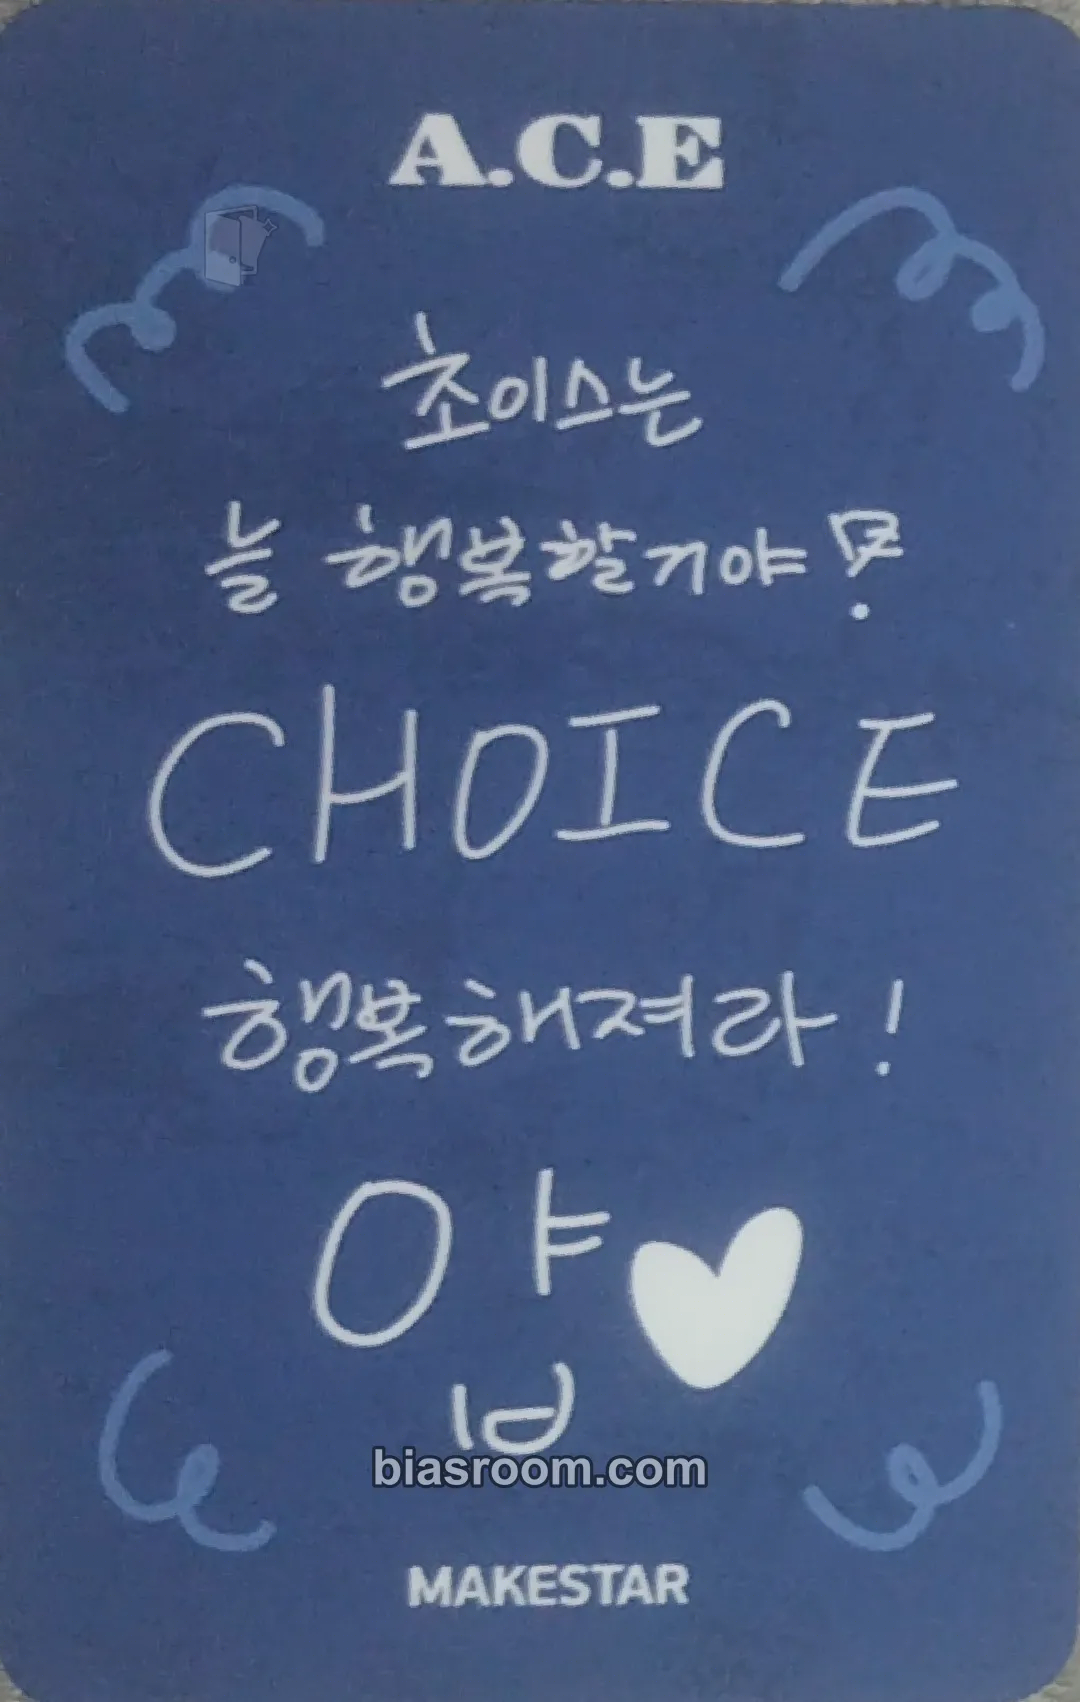 A.C.E
초이스는
늘 행복할거야!
CHOICE
행복해져라!
얍
biasroom.com
MAKESTAR